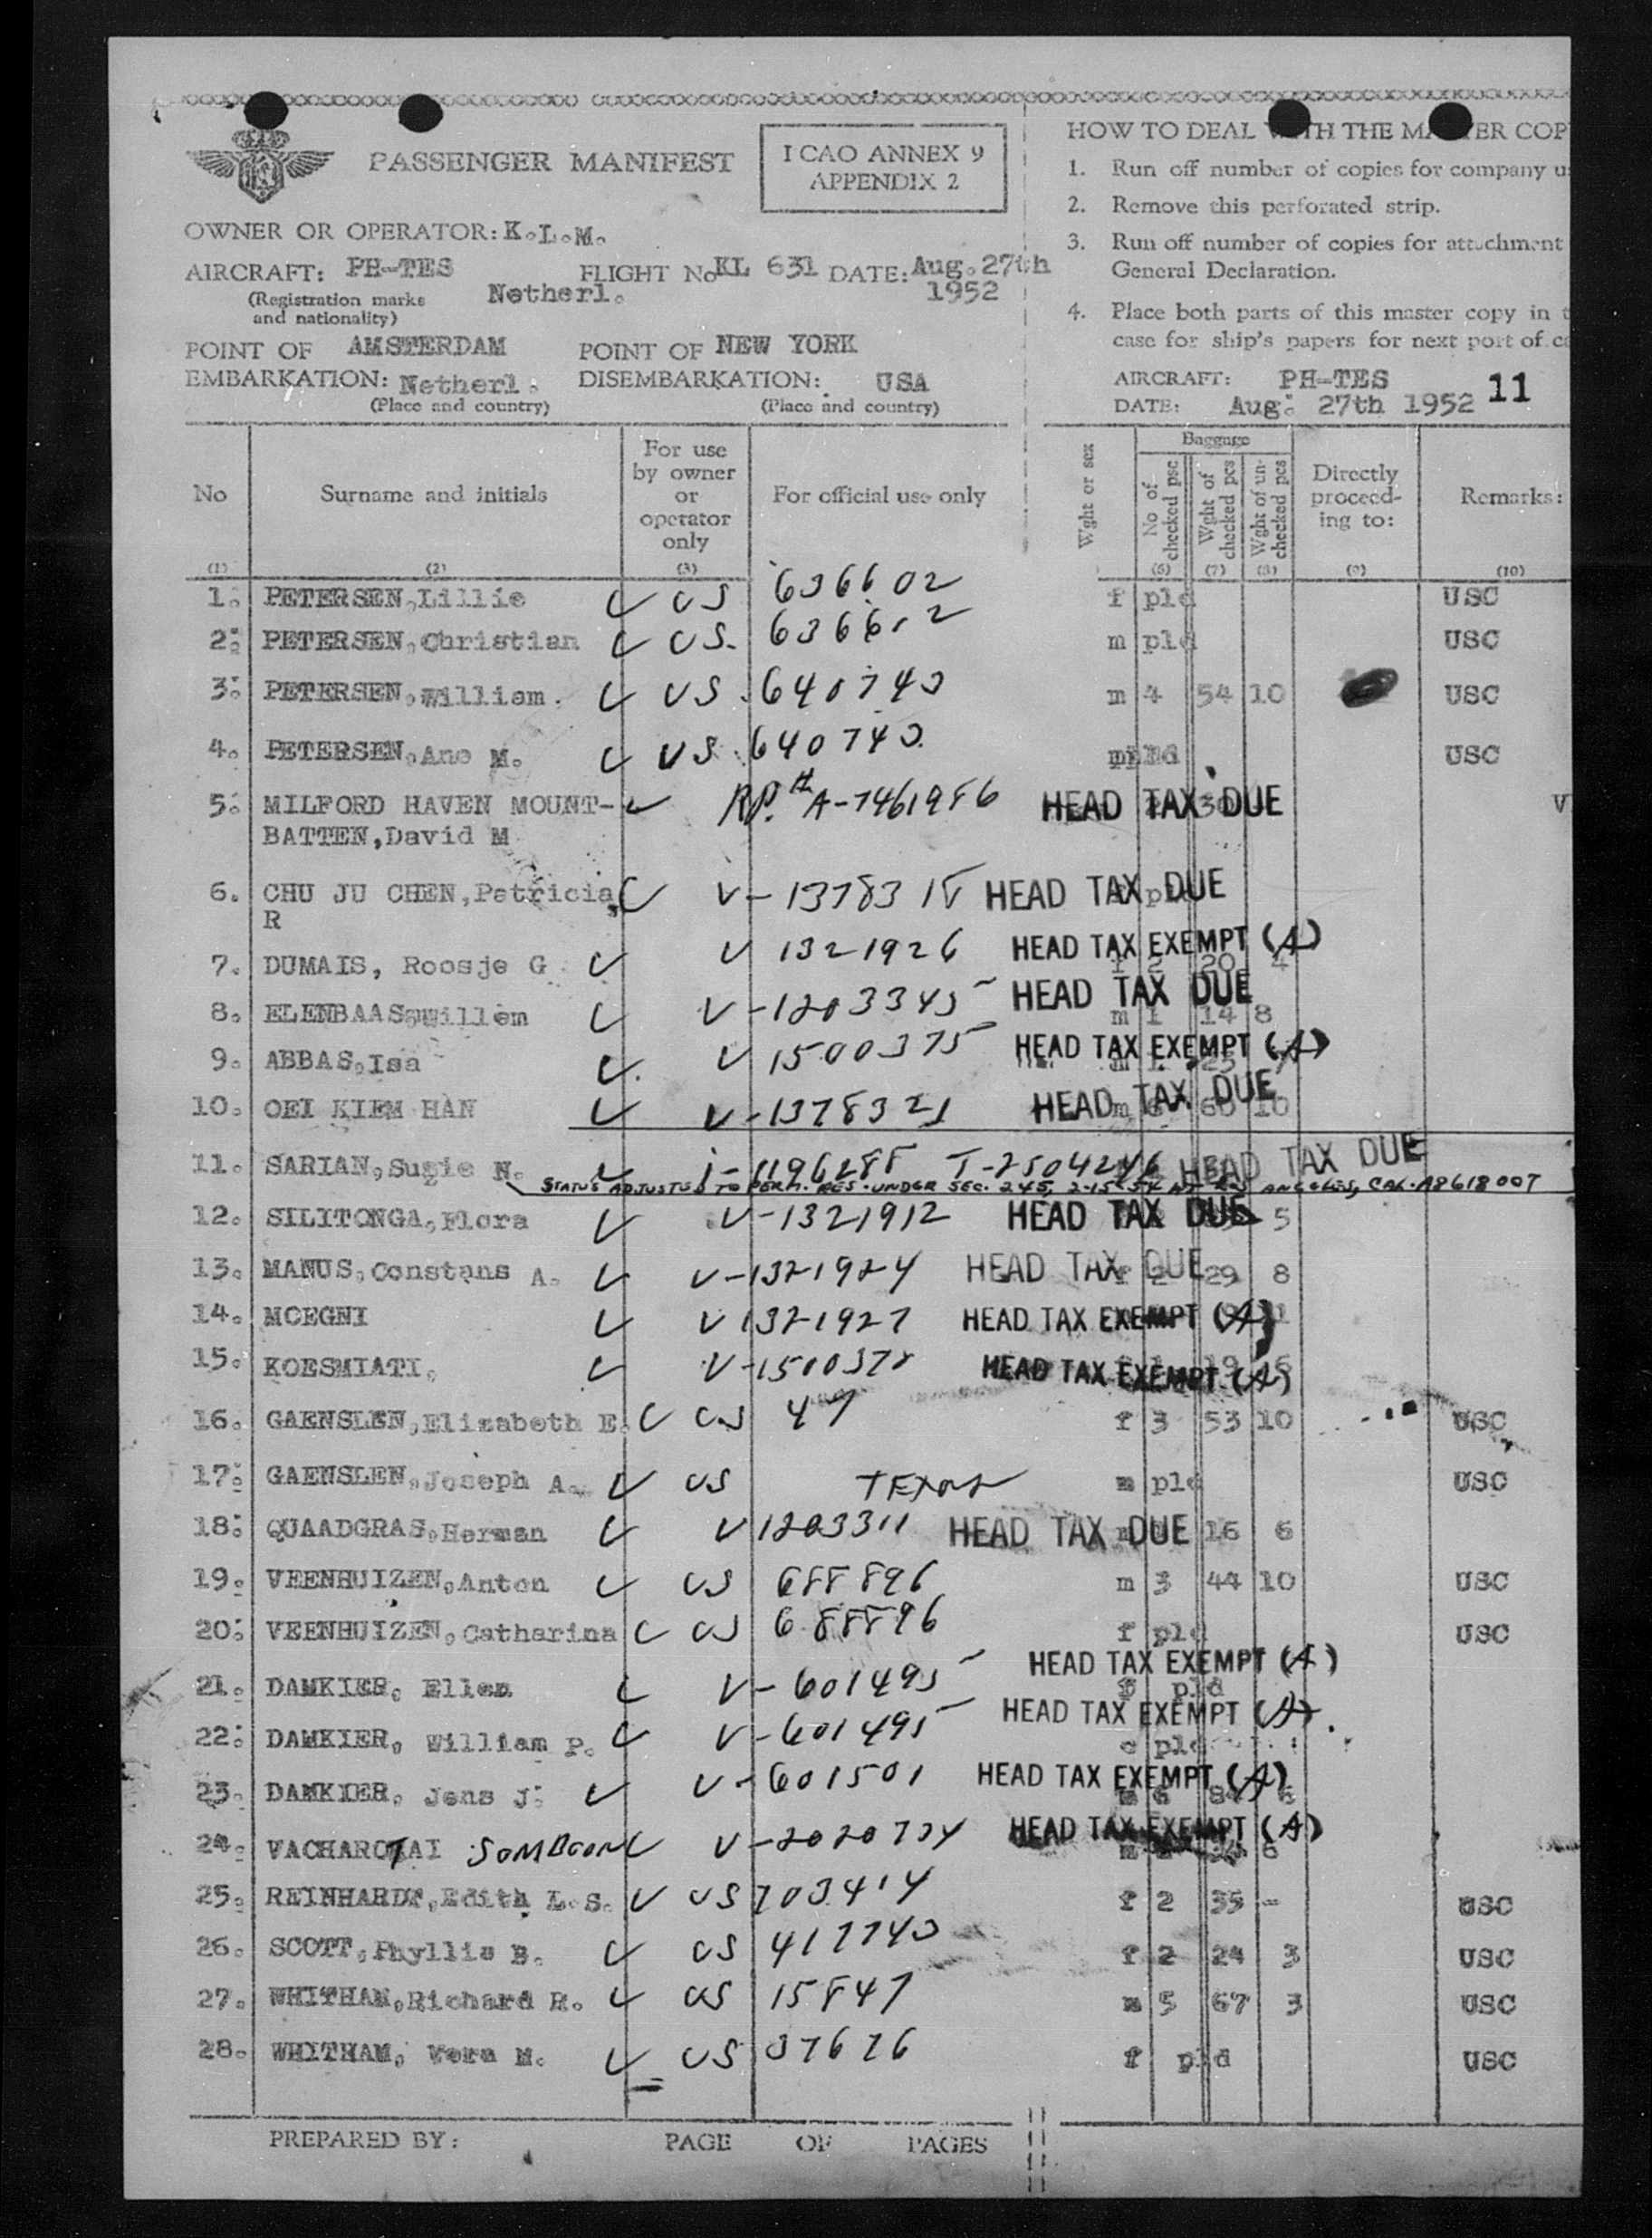 PASSENGER MANIFEST
ICAO ANNEX 9
APPENDIX 2
OWNER OR OPERATOR: K.L.M.
AIRCRAFT: PH-TES FLIGHT No KL 631 DATE: Aug. 27th
1952
(Registration marks
and nationality)
Netherl.
POINT OF AMSTERDAM POINT OF NEW YORK
EMBARKATION: Netherl. DISEMBARKATION: USA
(Place and country) (Place and country)
HOW TO DEAL
1. Run off number of copies for company
2. Remove this perforated strip.
3. Run off number of copies for attachment
General Declaration.
4. Place both parts of this master copy in
case for ship's papers for next port of
AIRCRAFT: PH-TES 11
DATE: Aug. 27th 1952
No Surname and initials For use by owner or operator only For official use only Wght or sex Baggage No of checked psc Wght of checked pcs Wght of un-checked pcs Directly proceed-ing to: Remarks:
(1) (2) (3) (6) (7) (8) (9) (10)
1. PETERSEN, Lillie US 636602 f pld USC
2. PETERSEN, Christian US. 636612 m pld USC
3. PETERSEN, William. US 640743 m 4 54 10 USC
4. PETERSEN, Ane M. US 640743 USC
5. MILFORD HAVEN MOUNT- RP. # A-7461986 HEAD TAX DUE V
BATTEN, David M
6. CHU JU CHEN, Patricia, HEAD TAX DUE
R
7. DUMAIS, Roosje G V 1321926 HEAD TAX EXEMPT (A) f 2 20 4
8. ELENBAAS, Willem V-1203345 HEAD TAX DUE m 1 14 8
9. ABBAS, Isa V 1500375 HEAD TAX EXEMPT (A)
10. OEI KIEM HAN V-1378321 HEAD TAX DUE
11. SARIAN, Sugie N. T-2504246 HEAD TAX DUE
STATUS ADJUSTED TO PERM. RES. UNDER SEC. 245, 2-15-54 AT LOS ANGELES, CAL. A8618007
12. SILITONGA, Flora V-1321912 HEAD TAX DUE 5
13. MANUS, Constans A. V-1321924 HEAD TAX DUE f 2 29 8
14. MOEGNI V 1321927 HEAD TAX EXEMPT (A)
15. KOESMIATI, HEAD TAX EXEMPT (A)
16. GAENSLEN, Elizabeth E. US 47 f 3 53 10 USC
17. GAENSLEN, Joseph A. US TEXAS m pld USC
18. QUAADGRAS, Herman V 1203311 HEAD TAX DUE 16 6
19. VEENHUIZEN, Anton US 688896 m 3 44 10 USC
20. VEENHUIZEN, Catharina US 688896 f pld USC
21. DAMKIER, Ellen V-601495 HEAD TAX EXEMPT (A) pld
22. DAMKIER, William P. V-601495 HEAD TAX EXEMPT (A) pld
23. DAMKIER, Jens J. V-601501 HEAD TAX EXEMPT (A)
24. VACHAROTAI SOMBOON V-2020724 HEAD TAX EXEMPT (A)
25. REINHARDT, Edith L.S. US 703414 f 2 35 - USC
26. SCOTT, Phyllis B. US 417740 f 2 24 3 USC
27. WHITHAM, Richard R. US 15847 m 5 67 3 USC
28. WHITHAM, Vera M. US 37676 f pld USC
PREPARED BY: PAGE OF PAGES